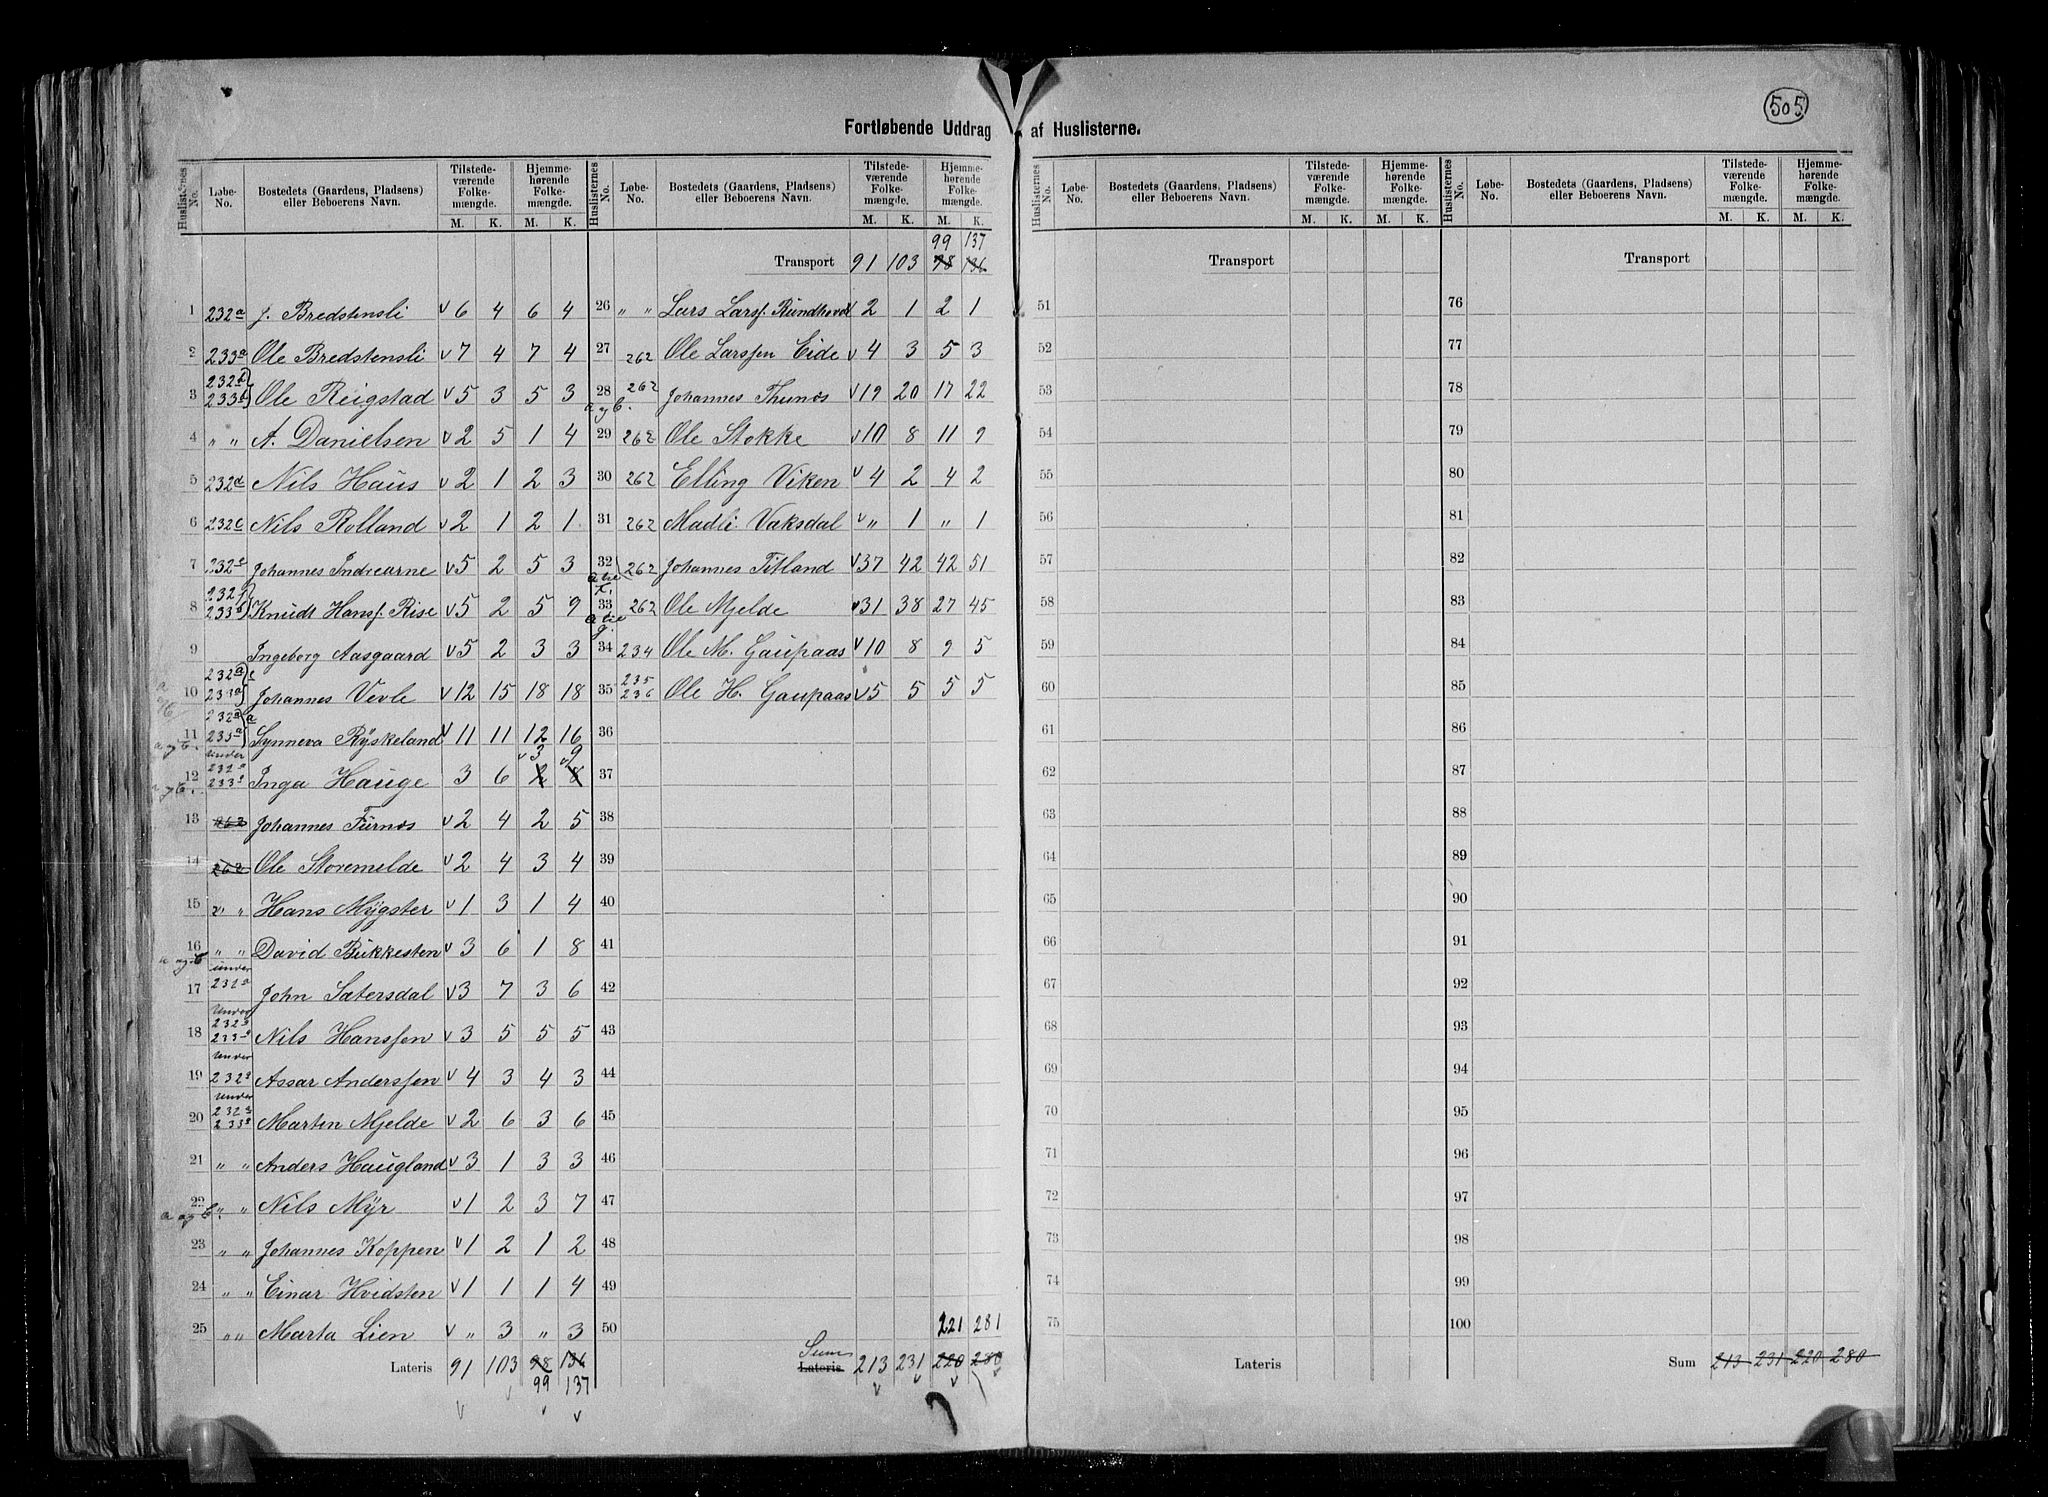 505
Fortløbende Uddrag af Huslisterne.
Huslisternes No. | Løbe-No. | Bostedets (Gaardens, Pladsens) eller Beboerens Navn. | Tilstedeværende Folkemængde. M. K. | Hjemmehørende Folkemængde. M. K.
1 232a J. Bredstensli v 6 4 6 4
2 233a Ole Bredstensli v 7 4 7 4
3 232 233 Ole Reigstad v 5 3 5 3
4 " " A. Danielsen v 2 5 1 4
5 232d Nils Haus v 2 1 2 3
6 232c Nils Rolland v 2 1 2 1
7 232e Johannes Indrearne v 5 2 5 3
8 232f 233a Knudt Hansf. Rise v 5 2 5 9
9 Ingeborg Aasgaard v 5 2 3 3
10 232a 233a Johannes Vevle v 12 15 18 18
11 a og b. 232a 233a Synneva Ryskeland v 11 11 12 16
12 a og b. under 232a 233a Inga Hauge 3 6 2 8 v 3 v 9
13 262 Johannes Furnes v 2 4 2 5
14 262 Ole Storemelde v 2 4 3 4
15 " " Hans Mygster v 1 3 1 4
16 a og b " " David Bukkesten v 3 6 1 8
17 under 232a John Satersdal v 3 7 3 6
18 under 232a 233a Nils Hanssen v 3 5 5 5
19 under 232a Assar Anderssen v 4 3 4 3
20 under 232a 233a Marten Mjelde v 2 6 3 6
21 " " Anders Haugland v 3 1 3 3
22 a og b. " " Nils Myr v 1 2 3 7
23 " " Johannes Koppen v 1 2 1 2
24 " " Einar Hvidsten v 1 1 1 4
25 " " Marta Lien v " 3 " 3
Lateris 91 103 98 136
99 137
Huslisternes No. | Løbe-No. | Bostedets (Gaardens, Pladsens) eller Beboerens Navn. | Tilstedeværende Folkemængde. M. K. | Hjemmehørende Folkemængde. M. K.
99 137
Transport 91 103 98 136
26 " " Lars Larsf. Rundhovde 2 1 2 1
27 262 Ole Larssen Eide v 4 3 5 3
28 a og b. 262 Johannes Thunes v 19 20 17 22
29 262 Ole Stokke v 10 8 11 9
30 262 Elling Viken v 4 2 4 2
31 262 Madli Vaksdal v " 1 " 1
32 262 Johannes Titland v 37 42 42 51
33 262 Ole Mjelde v 31 38 27 45
34 234 Ole M. Gaupaas v 10 8 9 5
35 235 236 Ole H. Gaupaas v 5 5 5 5
36
37
38
39
40
41
42
43
44
45
46
47
48
49
50
221 281
Sum Lateris 213 231 220 280
Huslisternes No. | Løbe-No. | Bostedets (Gaardens, Pladsens) eller Beboerens Navn. | Tilstedeværende Folkemængde. M. K. | Hjemmehørende Folkemængde. M. K.
Transport
51
52
53
54
55
56
57
58
59
60
61
62
63
64
65
66
67
68
69
70
71
72
73
74
75
Lateris
Huslisternes No. | Løbe-No. | Bostedets (Gaardens, Pladsens) eller Beboerens Navn. | Tilstedeværende Folkemængde. M. K. | Hjemmehørende Folkemængde. M. K.
Transport
76
77
78
79
80
81
82
83
84
85
86
87
88
89
90
91
92
93
94
95
96
97
98
99
100
Sum 213 231 220 280